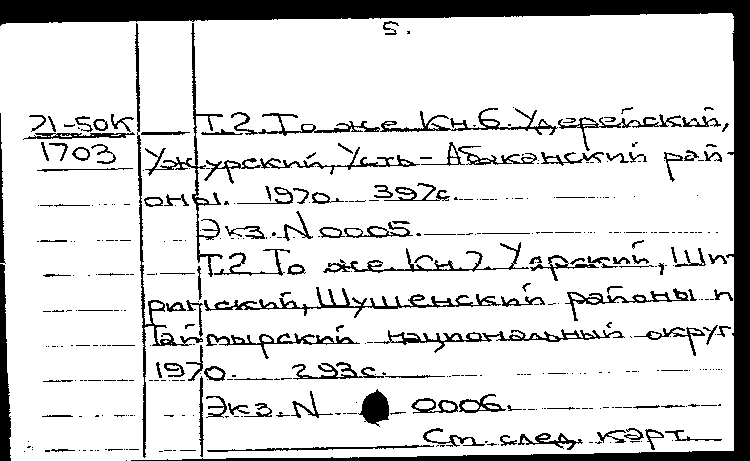 5.
71-50К Т.2. То же. Кн.6. Удерейский,
1703 Ужурский, Усть-Абаканский рай-
оны. 1970. 397с.
Экз.N 0005.
Т.2. То же. Кн.7. Уярский, Ши-
ринский, Шушенский районы и
Таймырский национальный округ.
1970. 293с.
Экз.N 0006.
См. след. карт.